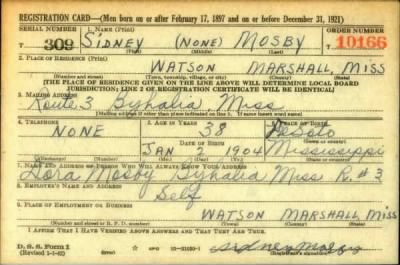 REGISTRATION CARD—(Men born on or after February 17, 1897 and on or before December 31, 1921)
SERIAL NUMBER 1. NAME (Print) ORDER NUMBER
T 309 SIDNEY (NONE) MOSBY 10166
(First) (Middle) (Last)
2. PLACE OF RESIDENCE (Print)
WATSON MARSHALL, MISS
(Number and street) (Town, township, village, or city) (County) (State)
[THE PLACE OF RESIDENCE GIVEN ON THE LINE ABOVE WILL DETERMINE LOCAL BOARD
JURISDICTION; LINE 2 OF REGISTRATION CERTIFICATE WILL BE IDENTICAL]
3. MAILING ADDRESS
Route 3 Byhalia, Miss
[Mailing address if other than place indicated on line 2. If same insert word same]
4. TELEPHONE 5. AGE IN YEARS 6. PLACE OF BIRTH
NONE 38 DeSoto
DATE OF BIRTH
JAN 2 1904 Mississippi
7. NAME AND ADDRESS OF PERSON WHO WILL ALWAYS KNOW YOUR ADDRESS
Dora Mosby Byhalia Miss R. #3
8. EMPLOYER'S NAME AND ADDRESS
Self
9. PLACE OF EMPLOYMENT OR BUSINESS
WATSON MARSHALL, MISS
(Number and street or R. F. D. number) (Town) (County) (State)
I AFFIRM THAT I HAVE VERIFIED ABOVE ANSWERS AND THAT THEY ARE TRUE.
D. S. S. Form 1
(Revised 1-1-42) Sidney Mosby